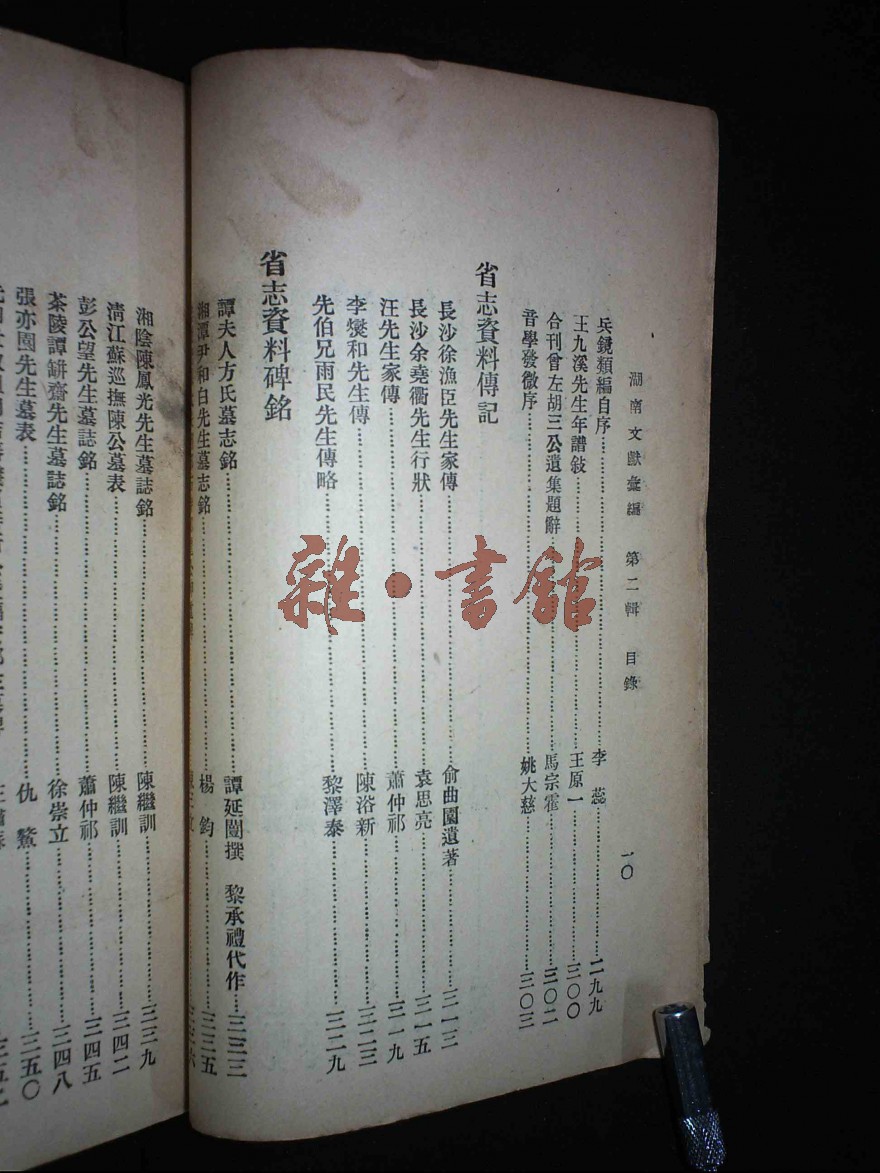 湖南文獻彙編 第二輯 目錄 一〇
兵鏡類編自序 李蕊 二九九
王九溪先生年譜敍 王原一 三〇〇
合刊曾左胡三公遺集題辭 馬宗霍 三〇二
音學發微序 姚大慈 三〇三
省志資料傳記
長沙徐漁臣先生家傳 俞曲園遺著 三一三
長沙余堯衢先生行狀 袁思亮 三一五
汪先生家傳 蕭仲祁 三一九
李燮和先生傳 陳浴新 三二三
先伯兄雨民先生傳略 黎澤泰 三二九
省志資料碑銘
譚夫人方氏墓志銘 譚延闓撰 黎承禮代作 三三三
湘潭尹和白先生墓志銘 楊鈞 三三五
湘陰陳鳳光先生墓誌銘 陳繼訓 三三九
清江蘇巡撫陳公墓表 陳繼訓 三四二
彭公望先生墓誌銘 蕭仲祁 三四五
茶陵譚缾齋先生墓誌銘 徐崇立 三四八
張亦園先生墓表 仇鰲 三五〇
雜·書館